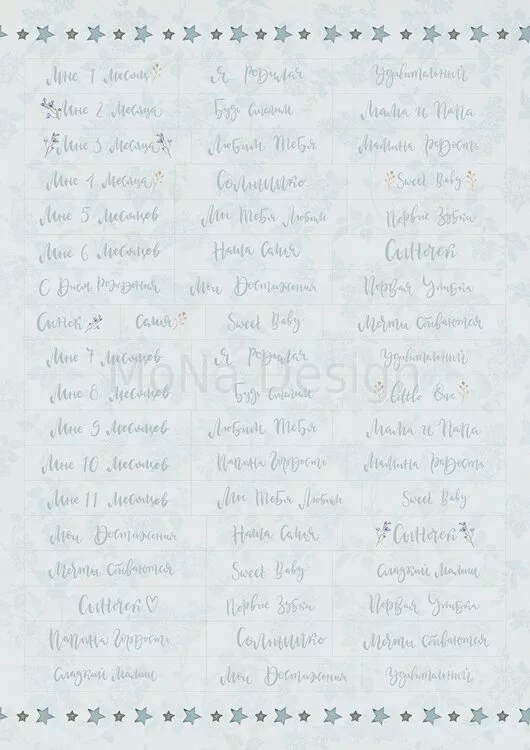 Мне 1 месяц Я Родилая Удивительный
Мне 2 Месяца Будь Смелым Мама и Папа
Мне 3 Месяца Любим Тебя Мамина Радость
Мне 4 Месяца Солнышко Sweet Baby
Мне 5 Месяцев Мы Тебя Любим Первые Зубки
Мне 6 Месяцев Наша Семья Сыночек
С Днем Рождения Мои Достижения Первая Улыбка
Сынок Семья Sweet Baby Мечты Сбываются
Мне 7 Месяцев Я Родилая Удивительный
MoNa Design
Мне 8 Месяцев Будь Смелым Little One
Мне 9 Месяцев Любим Тебя Мама и Папа
Мне 10 Месяцев Папина Гордость Мамина Радость
Мне 11 Месяцев Мы Тебя Любим Sweet Baby
Мои Достижения Наша Семья Сыночек
Мечты Сбываются Sweet Baby Сладкий Малыш
Сыночек Первые Зубки Первая Улыбка
Папина Гордость Солнышко Мечты Сбываются
Сладкий Малыш Мои Достижения Удивительный